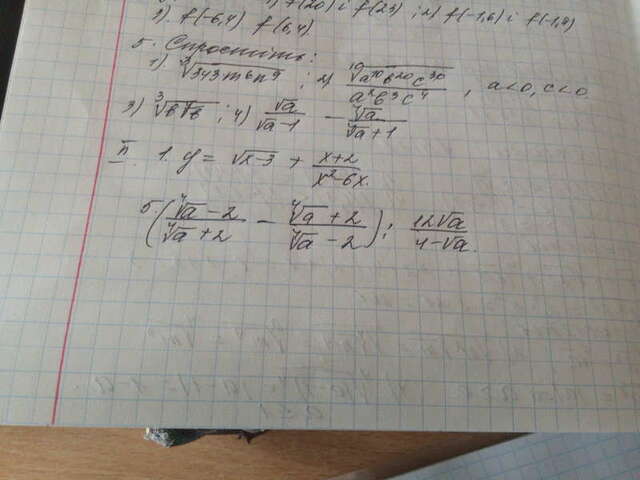 1) f(20) і f(23) ; 2) f(-1,6) і f(-1,4)
3). f(-6,4) f(6,4)
5. Спростіть:
1) ∛(343m⁶n⁹) ; 2) ¹⁰√(a¹⁰b²⁰c³⁰) / (a²b³c⁴) , a<0, c<0
3) ∛(b∜b) ; 4) √a/(√a-1) - ∜a/(∜a+1)
II. 1. y = √(x-3) + (x+2)/(x²-6x).
5. ((∜a-2)/(∜a+2) - (∜a+2)/(∜a-2)) : 12√a/(4-√a).